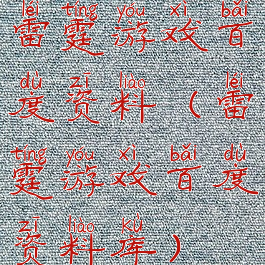 léi tíng yóu xì bǎi
雷霆游戏百
dù zī liào léi
度资料（雷
tíng yóu xì bǎi dù
霆游戏百度
zī liào kù
资料库）